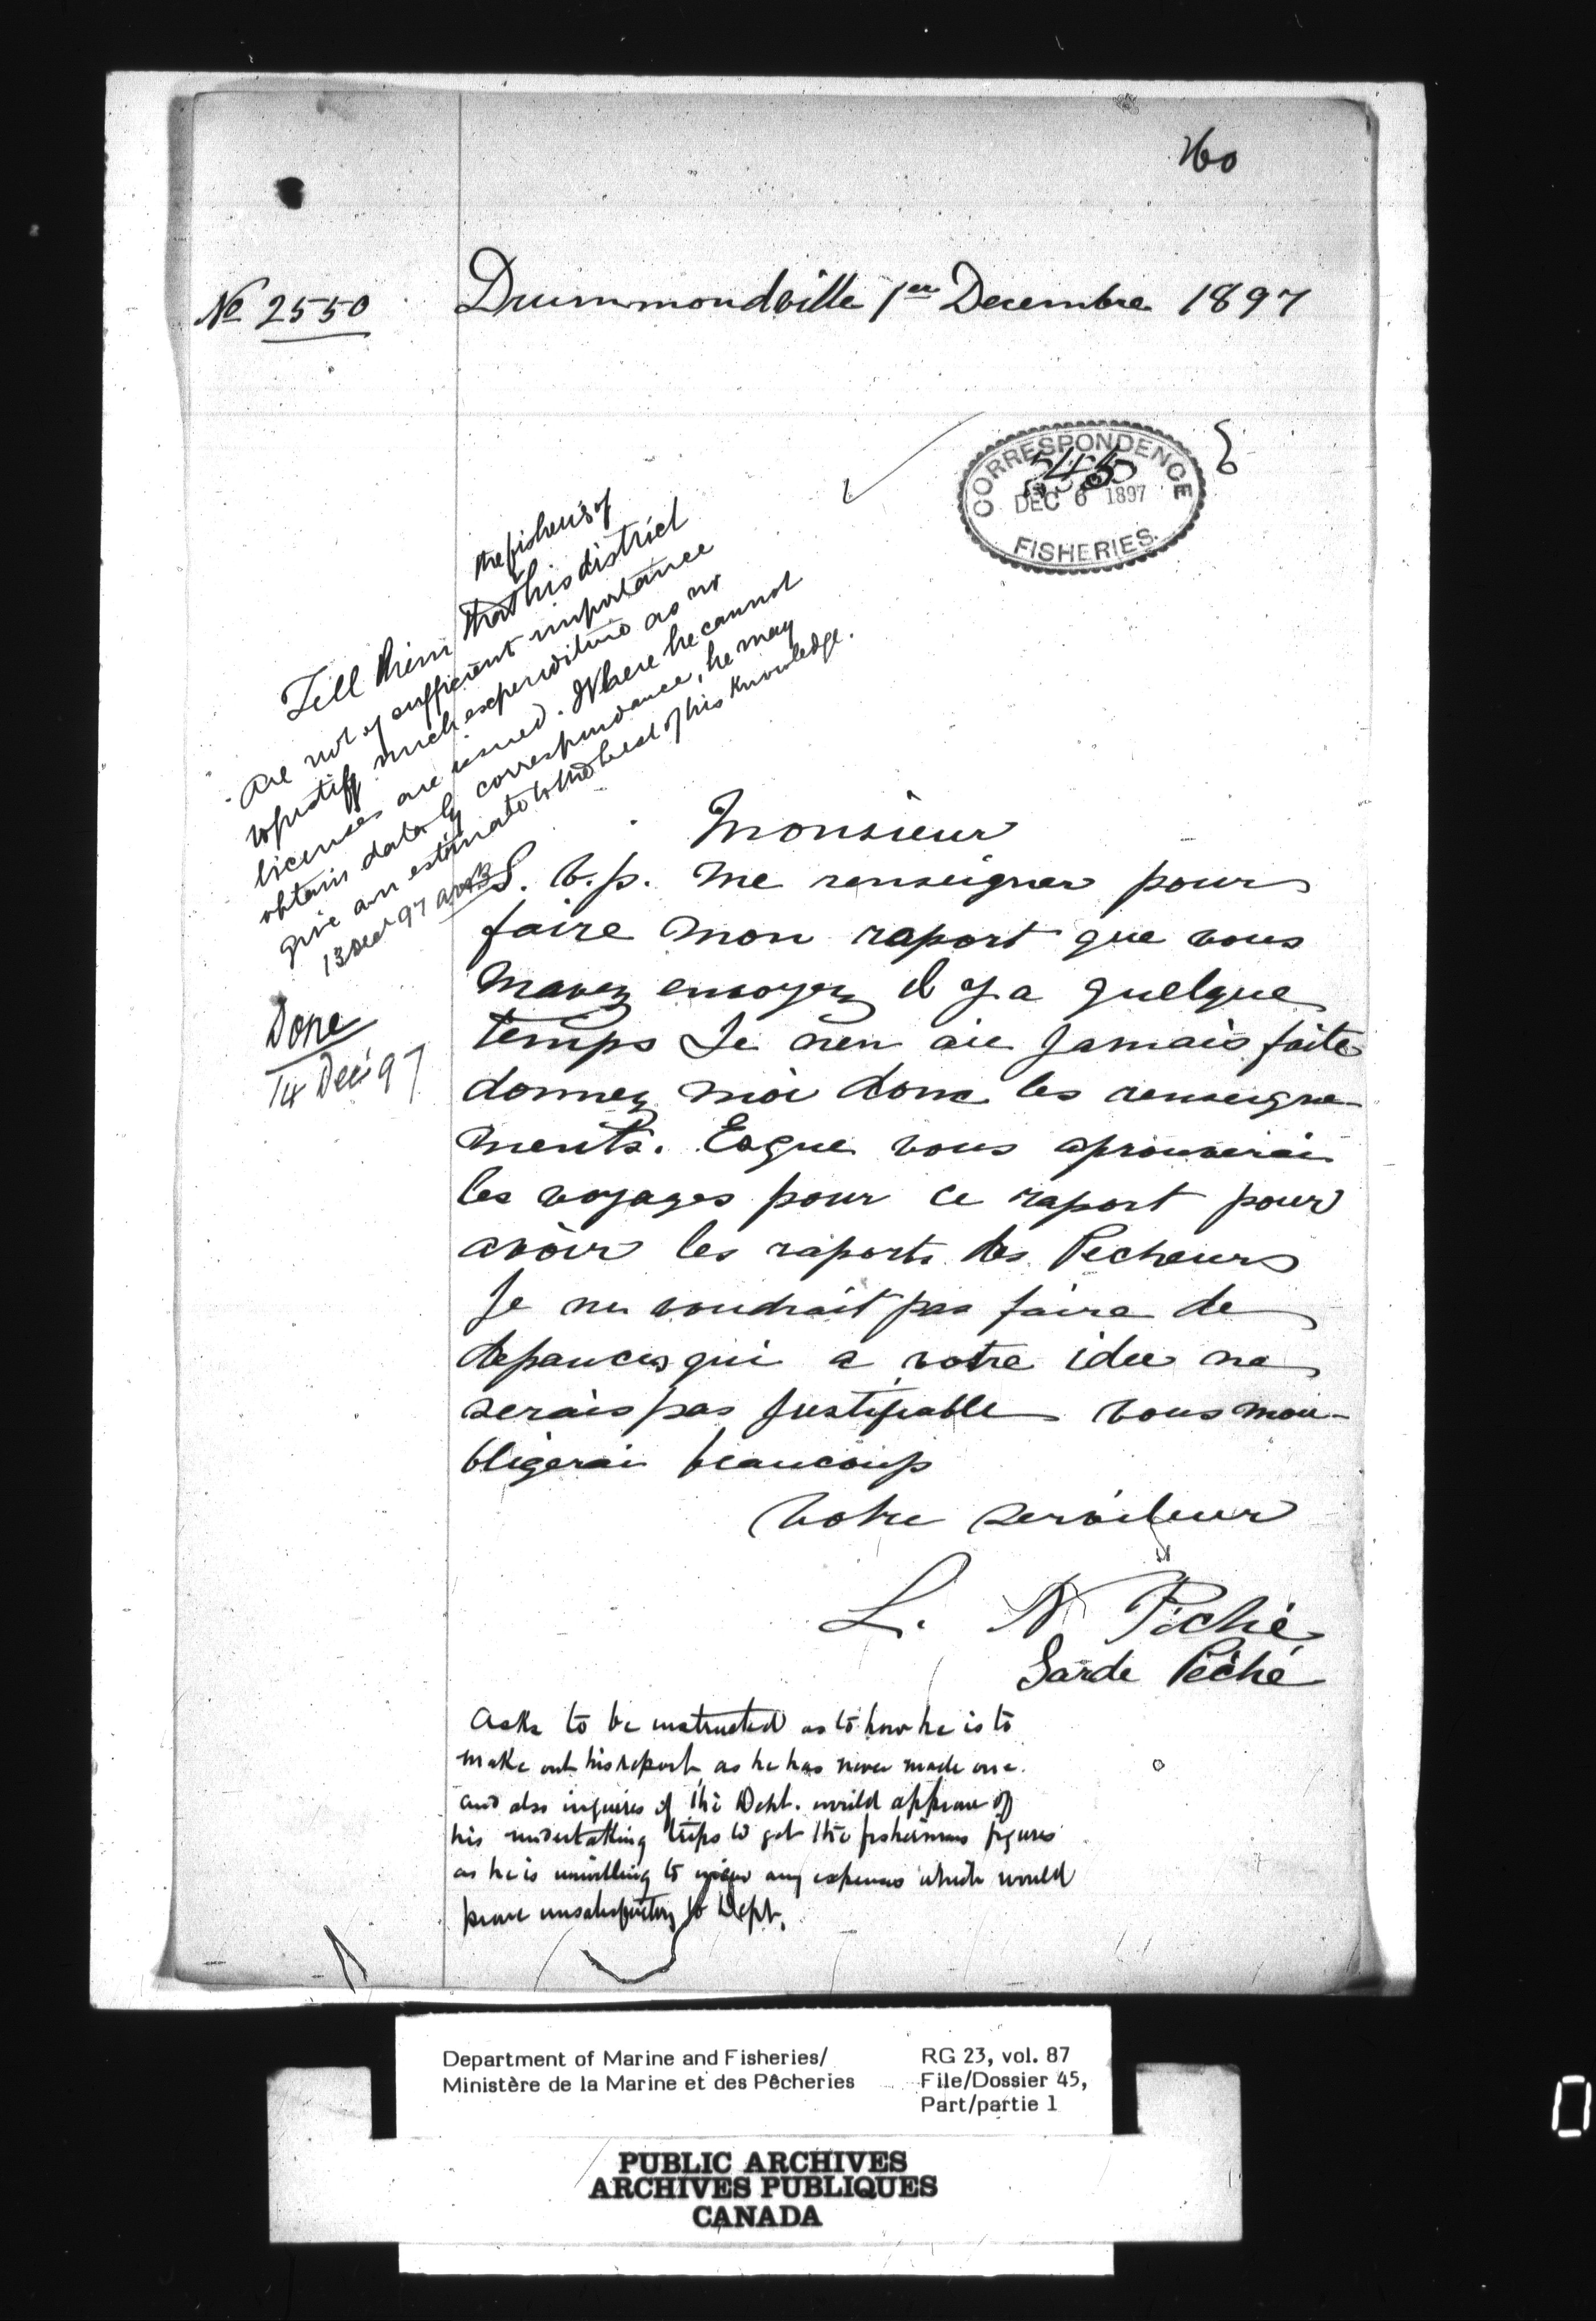 160
No 2550
Drummondville 1er Decembre 1897
CORRESPONDENCE
DEC 6 1897
FISHERIES.
the fisheries of
Tell him that his district
are not of sufficient importance
to justify much expenditure as no
licenses are issued. Where he cannot
obtain data by correspondance, he may
give an estimate to the best of his knowledge.
13 Dec 97
Done
14 Dec 97
Monsieur
S. v. p. me renseigner pour
faire mon raport que vous
mavez envoyez il y a quelque
temps Je nen aie Jamais faite
donnez moi donc les renseigne-
ments. Esque vous aprouverai
les voyages pour ce raport pour
avoir les raports des Pecheurs
Je ne voudrait pas faire de
depances qui a votre idee ne
serais pas Justifiable vous mou-
bligerai beaucoup
Votre serviteur
L. N Piché
Garde Pêche
Asks to be instructed as to how he is to
make out his report, as he has never made one.
and also inquires if the Dept. would approve of
his undertaking trips to get the fishermens figures
as he is unwilling to incur any expenses which would
prove unsatisfactory to Dept.
Department of Marine and Fisheries/
Ministère de la Marine et des Pêcheries
RG 23, vol. 87
File/Dossier 45,
Part/partie 1
PUBLIC ARCHIVES
ARCHIVES PUBLIQUES
CANADA